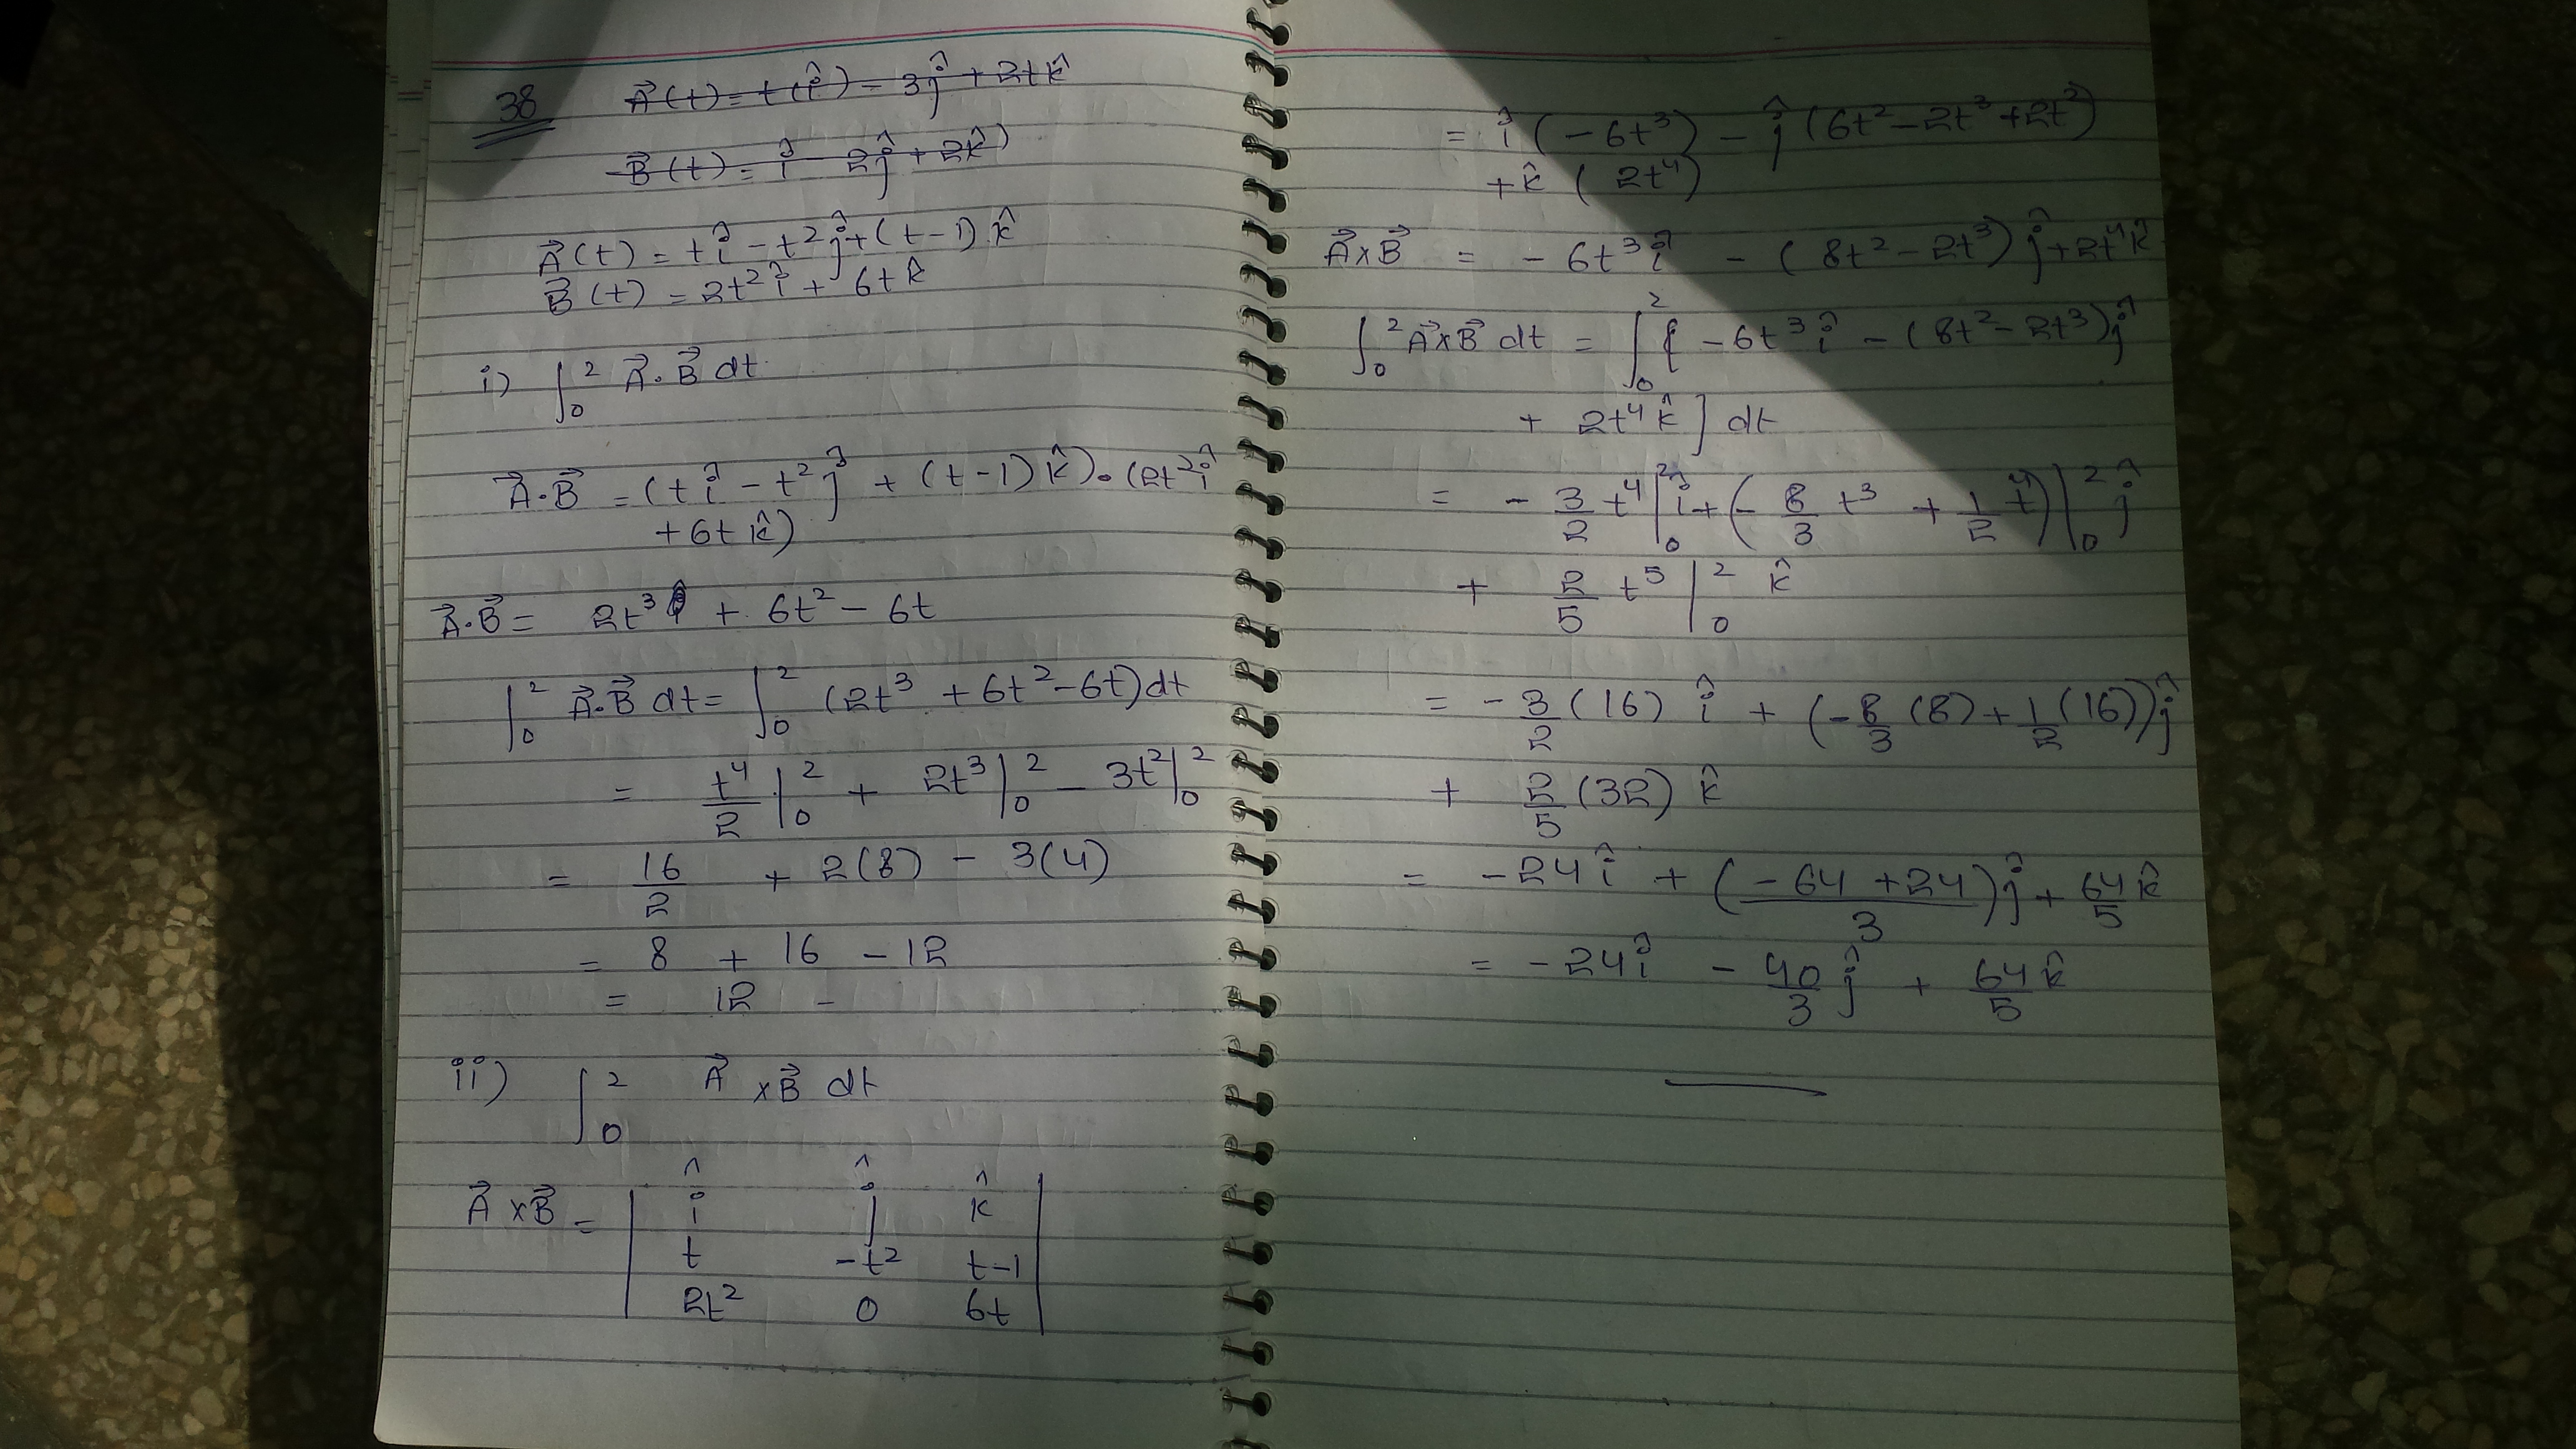 38 A⃗(t) = t(î) - 3ĵ + 2tk̂
B⃗(t) = î - 2ĵ + 2k̂)
A⃗(t) = tî - t²ĵ + (t-1)k̂
B⃗(t) = 2t²î + 6tk̂
i) ∫₀² A⃗.B⃗ dt
A⃗.B⃗ = (tî - t²ĵ + (t-1)k̂).(2t²î
+6tk̂)
A⃗.B⃗ = 2t³ + 6t² - 6t
∫₀² A⃗.B⃗ dt = ∫₀² (2t³ + 6t² - 6t)dt
= t⁴/2 |₀² + 2t³|₀² - 3t²|₀²
= 16/2 + 2(8) - 3(4)
= 8 + 16 - 12
= 12 -
ii) ∫₀² A⃗ × B⃗ dt
A⃗ × B⃗ = | î ĵ k̂ |
| t -t² t-1 |
| 2t² 0 6t |
= î(-6t³) - ĵ(6t² - 2t³ + 2t²)
+ k̂ (2t⁴)
A⃗×B⃗ = - 6t³î - (8t² - 2t³)ĵ + 2t⁴k̂
∫₀² A⃗×B⃗ dt = ∫₀² [ -6t³î - (8t² - 2t³)ĵ
+ 2t⁴k̂ ] dt
= - 3/2 t⁴|₀² î + (- 8/3 t³ + 1/2 t⁴)|₀² ĵ
+ 2/5 t⁵ |₀² k̂
= - 3/2 (16) î + (- 8/3 (8) + 1/2 (16))ĵ
+ 2/5 (32) k̂
= -24î + (-64 + 24)/3 ĵ + 64/5 k̂
= -24î - 40/3 ĵ + 64/5 k̂